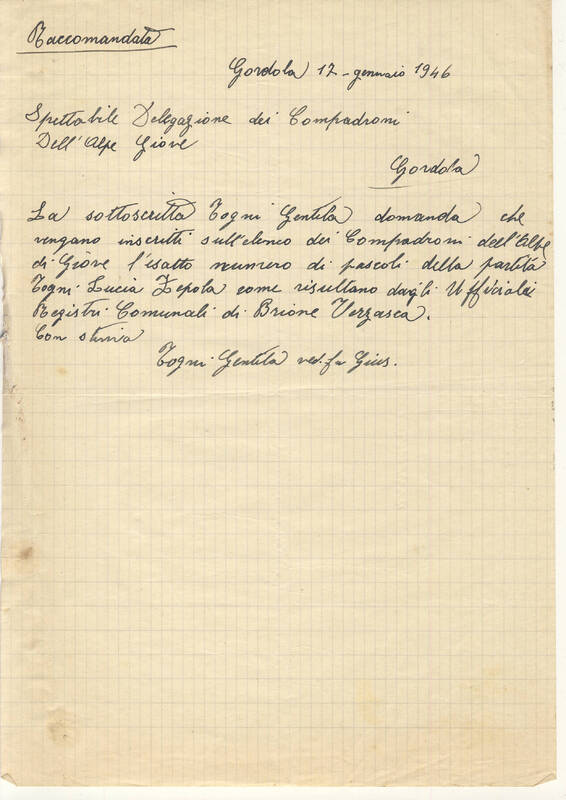 Raccomandata
Gordola 17 - gennaio 1946
Spettabile Delegazione dei Compadroni
Dell'Alpe Giove
Gordola
La sottoscritta Togni Gentila domanda che
vengano inscritti sull'elenco dei Compadroni dell'Alpe
di Giove l'esatto numero di pascoli della partita
Togni Lucia Zepola come risultano dagli Ufficiali
Registri Comunali di Brione Verzasca.
Con stima
Togni Gentila ved. fu Gius.